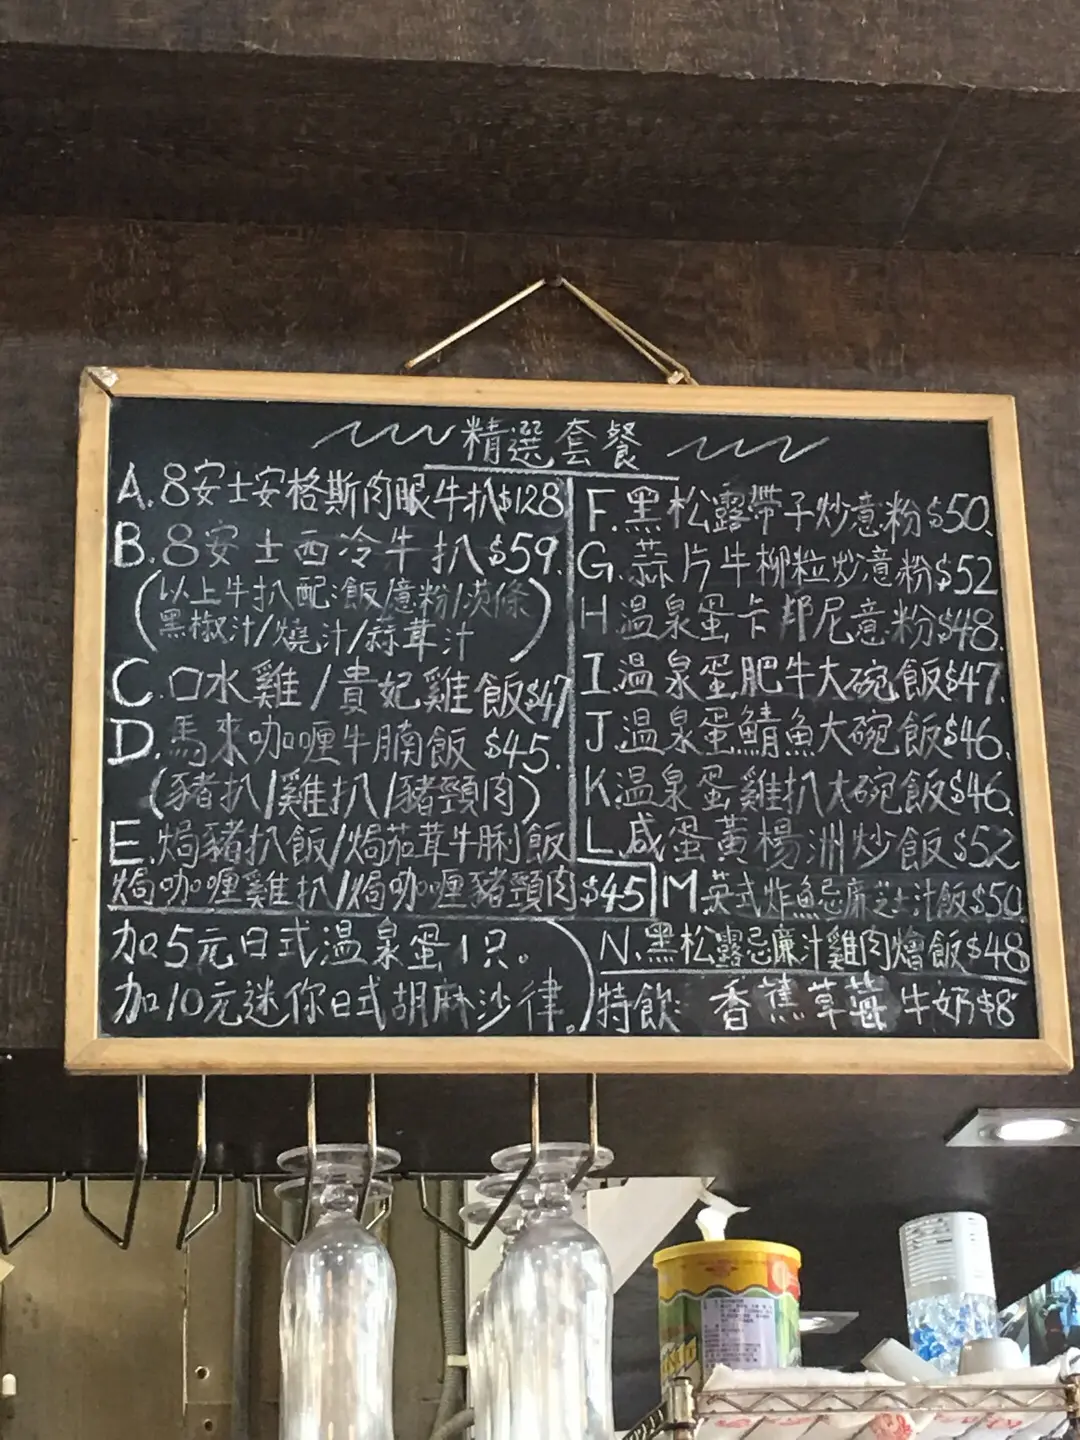 精選套餐
A. 8安士安格斯肉眼牛扒$128
B. 8安士西冷牛扒 $59.
(以上牛扒配:飯/意粉/薯條
黑椒汁/燒汁/蒜茸汁)
C. 口水雞/貴妃雞飯$47
D. 馬來咖喱牛腩飯 $45.
(豬扒/雞扒/豬頸肉)
E. 焗豬扒飯/焗茄茸牛脷飯
焗咖喱雞扒/焗咖喱豬頸肉 $45
加5元日式温泉蛋1只。
加10元迷你日式胡麻沙律。
F. 黑松露帶子炒意粉$50.
G. 蒜片牛柳粒炒意粉$52
H 温泉蛋卡邦尼意粉$48.
I. 温泉蛋肥牛大碗飯$47.
J. 温泉蛋鯖魚大碗飯$46.
K. 温泉蛋雞扒大碗飯$46.
L. 咸蛋黃楊洲炒飯$52
M 英式炸魚忌廉芝士汁飯$50
N. 黑松露忌廉汁雞肉燴飯$48
特飲: 香蕉草莓牛奶$8